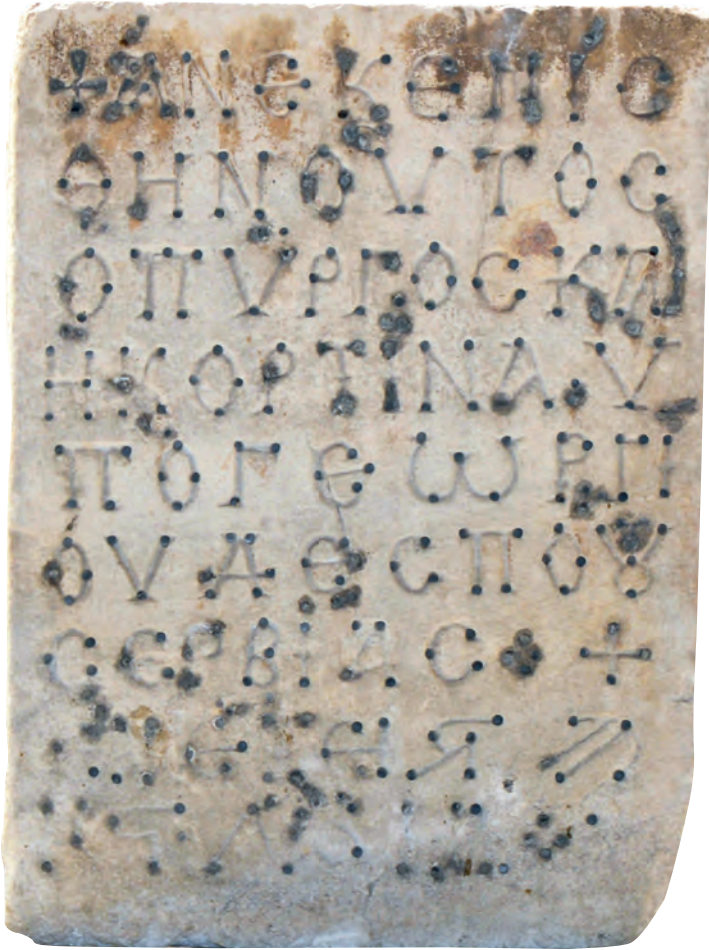 +ΑΝЄΚЄΝΙC
ΘΗΝΟVΤΟC
ΟΠVΡΓΟCΚΑΙ
ΗΚΟΡΤΙΝΑ·V
ΠΟΓЄѠΡΓΙ
ΟVΔЄCΠΟȣ
CЄΡΒΙΑC⁘+